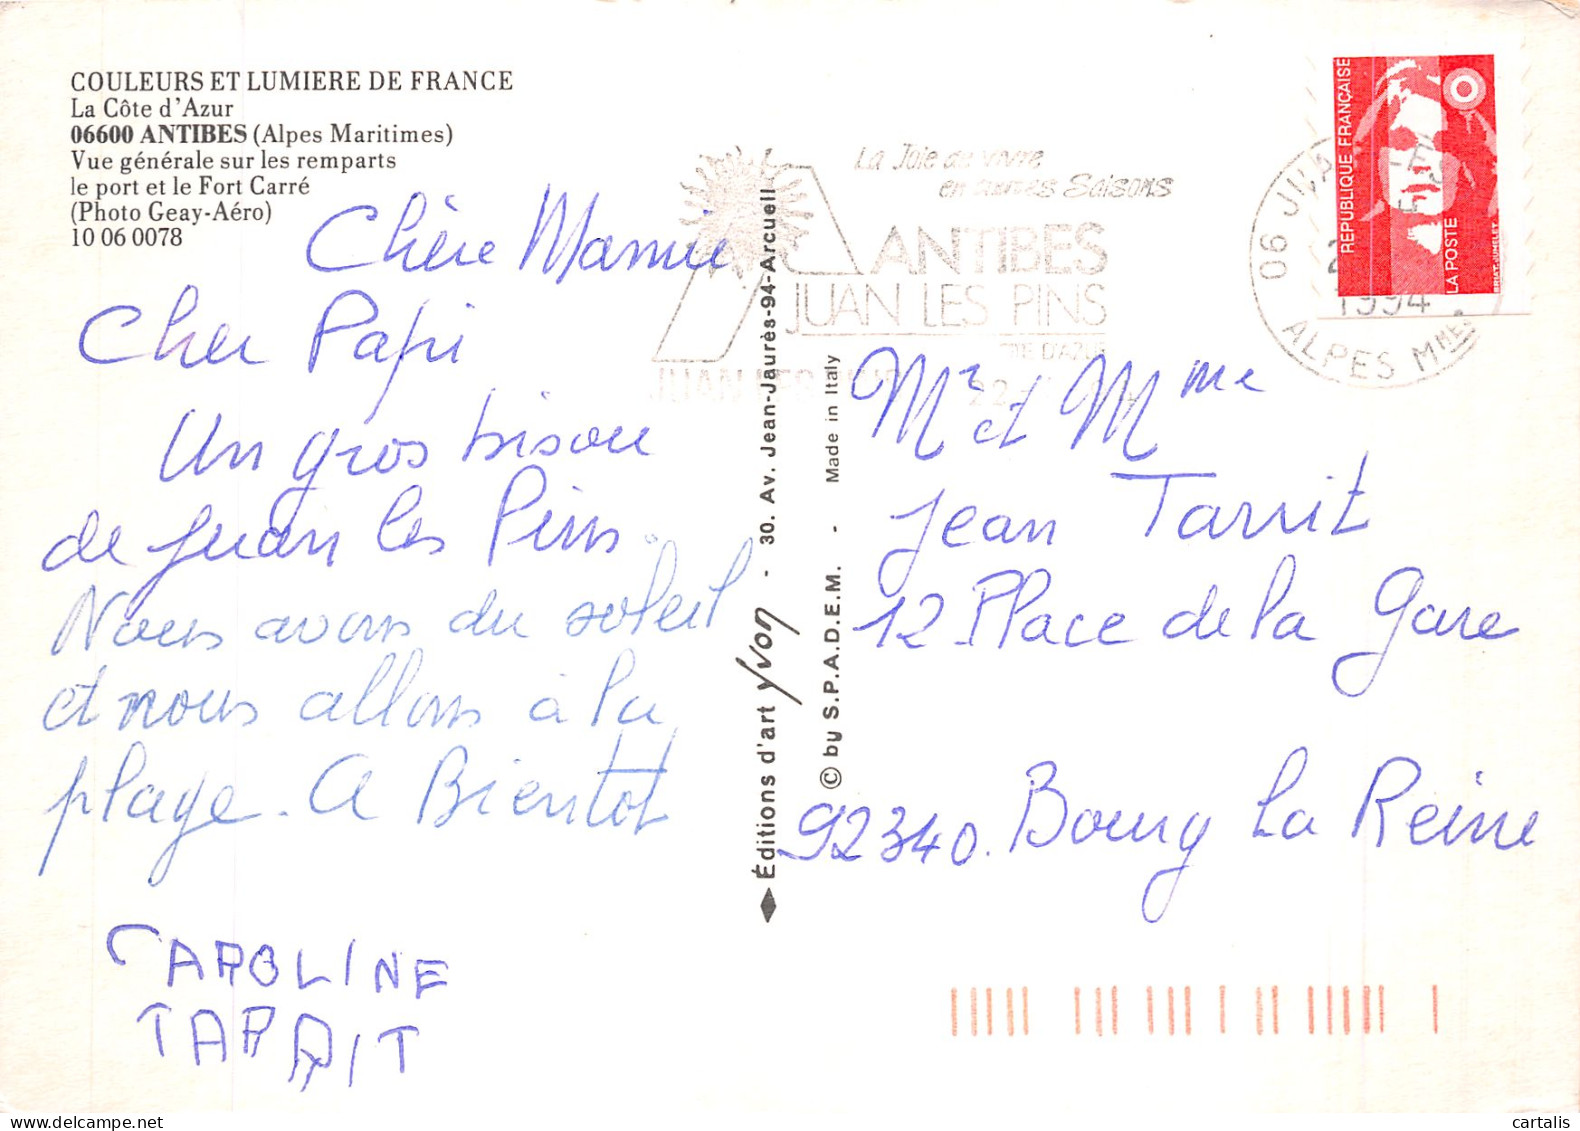 COULEURS ET LUMIERE DE FRANCE
La Côte d'Azur
06600 ANTIBES (Alpes Maritimes)
Vue générale sur les remparts
le port et le Fort Carré
(Photo Geay-Aéro)
10 06 0078
Chère Mamie
Cher Papi
Un gros bisou
de Juan les Pins.
Nous avons du soleil
et nous allons à la
plage. A Bientot
CAROLINE
TARRIT
Éditions d'art Yvon - 30. Av. Jean-Jaurès-94-Arcueil
© by S.P.A.D.E.M. - Made in Italy
La Joie de vivre
en autres Saisons
ANTIBES
JUAN LES PINS
D'AZUR
JUAN LES
22
06 JUA
1994
ALPES MMES
REPUBLIQUE FRANÇAISE
LA POSTE
BRIAT-JUMELET
Mr et Mme
Jean Tarrit
12 Place de la Gare
92340. Bourg La Reine
cartalis